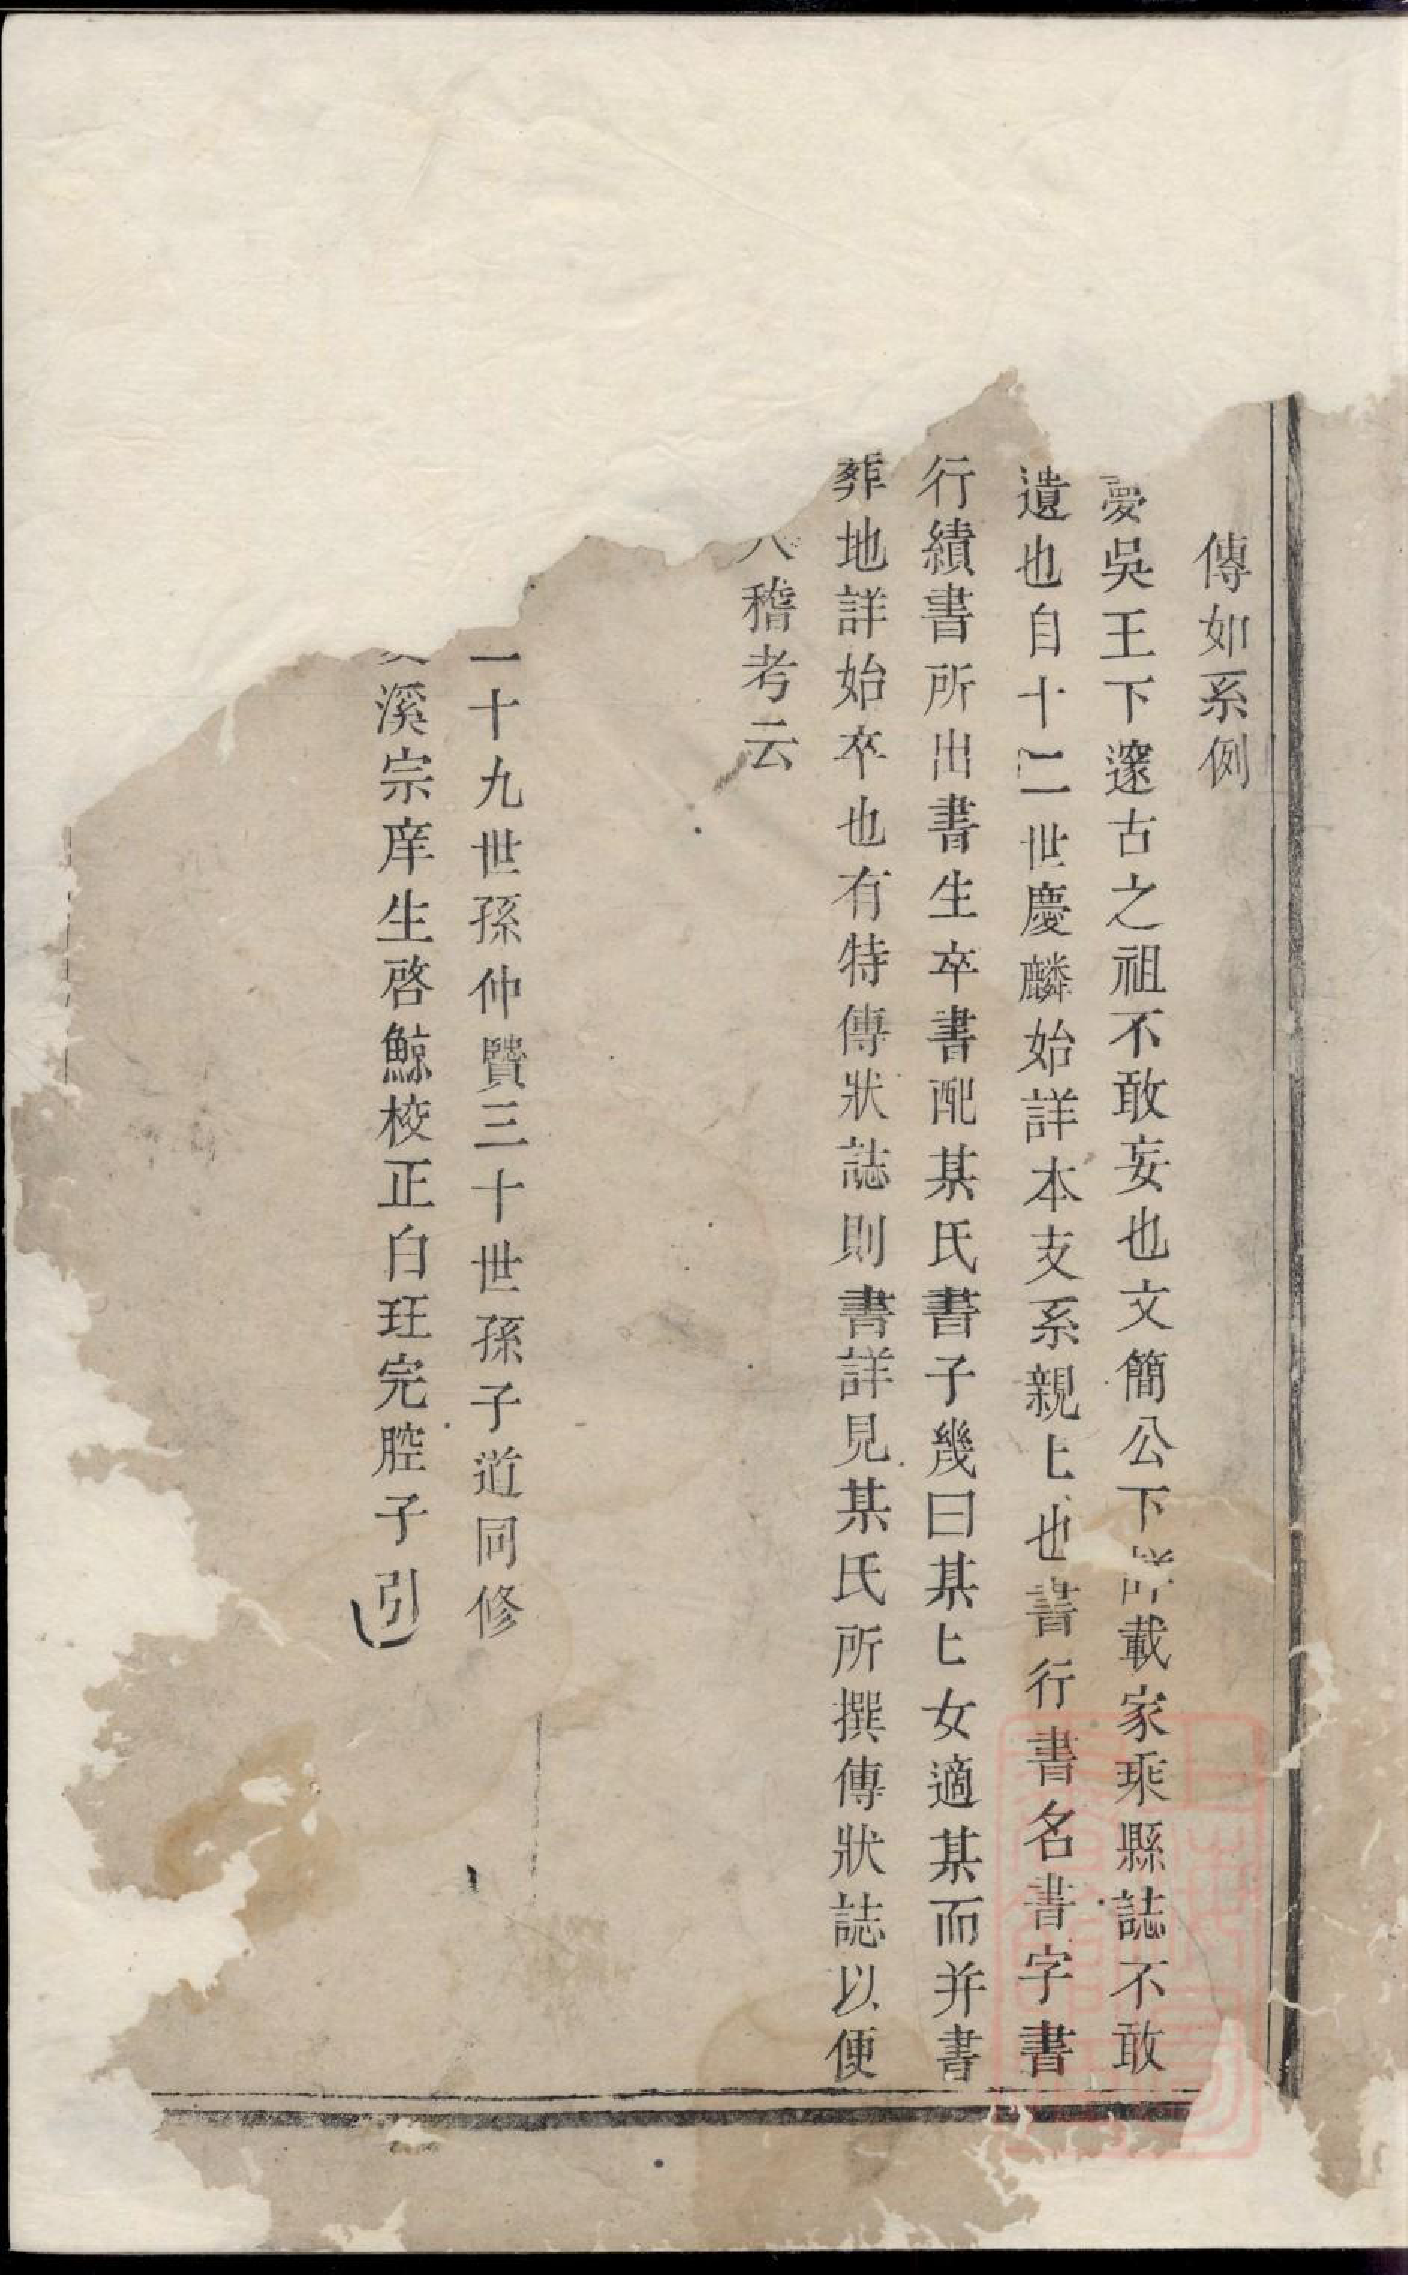 傳如系例
夢吳王下邃古之祖不敢妄也文簡公下載家乘縣誌不敢
遺也自十二世慶麟始詳本支系親上也書行書名書字書
行績書所出書生卒書配某氏書子幾曰某匕女適某而并書
葬地詳始卒也有特傳狀誌則書詳見某氏所撰傳狀誌以便
稽考云
一十九世孫仲贒三十世孫子道同修
溪宗庠生啓鯨校正白玨完腔子引